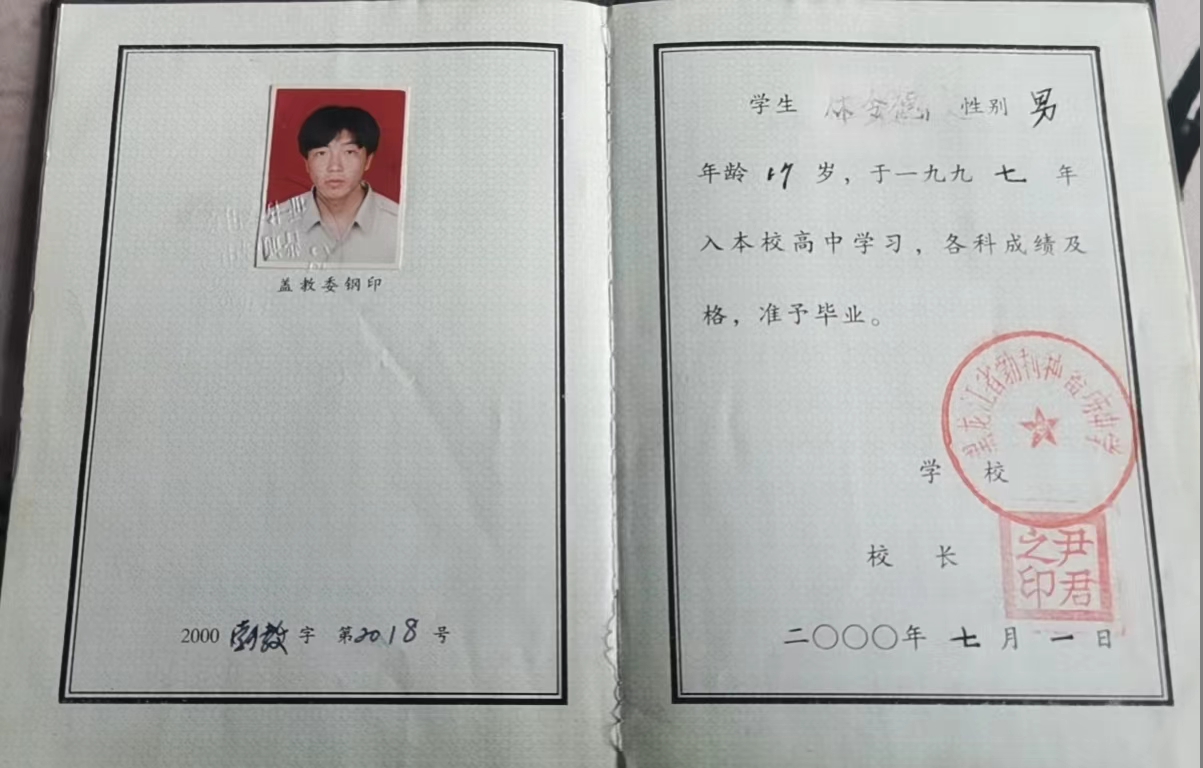 盖教委钢印
2000 字 第2018号
学生 性别 男
年龄 17 岁，于一九九 七 年
入本校高中学习，各科成绩及
格，准予毕业。
黑龙江省勃利种畜场中学
学 校
校 长
尹君之印
二〇〇〇年 七 月 一 日